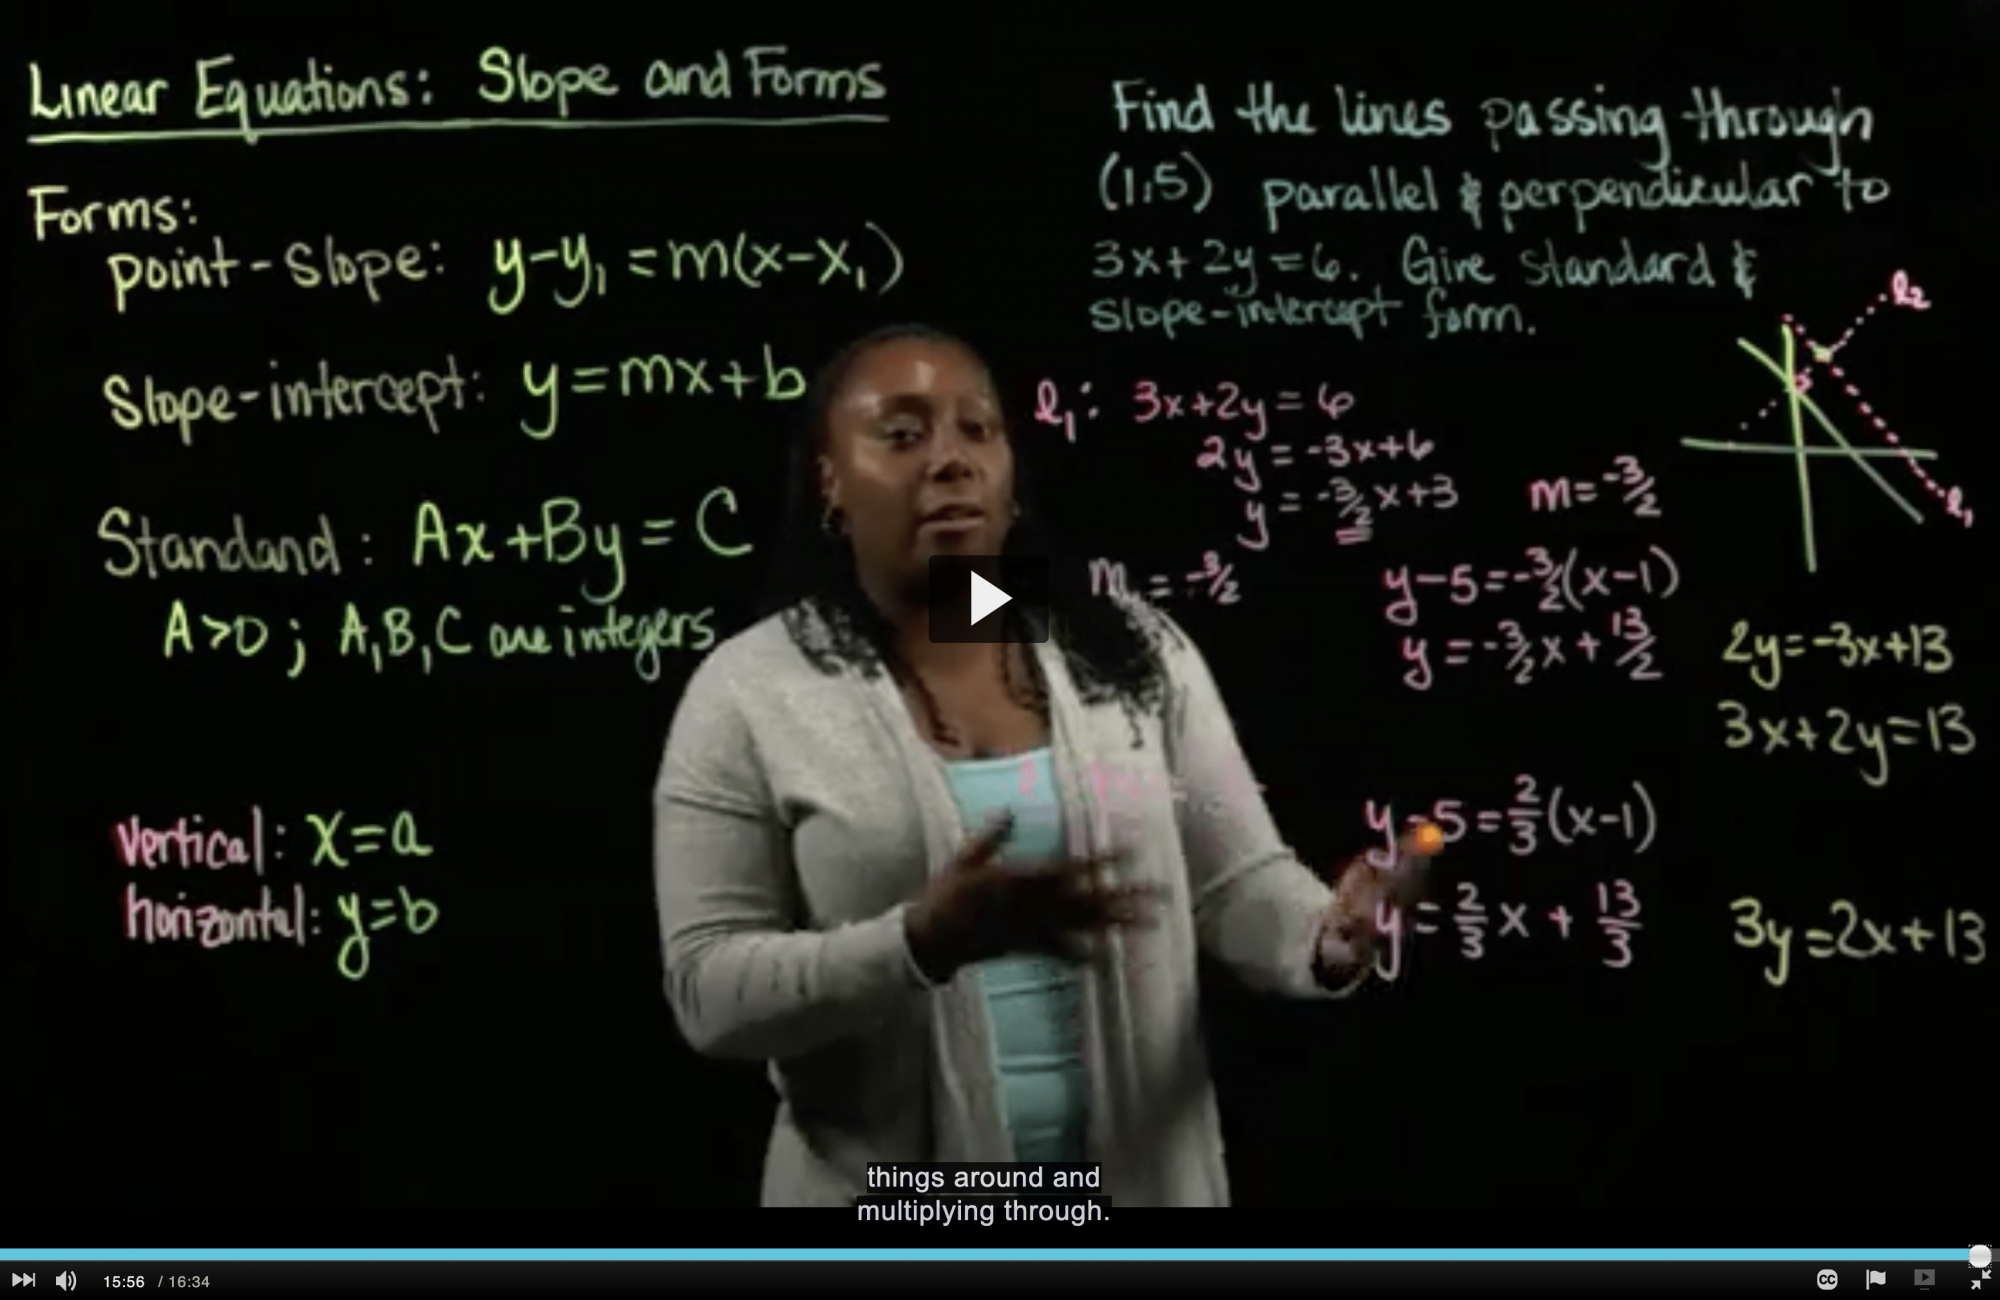 Linear Equations: Slope and Forms
Forms:
point-slope: y-y₁ = m(x-x₁)
Slope-intercept: y = mx+b
Standard: Ax+By = C
A>0 ; A,B,C are integers
vertical: x=a
horizontal: y=b
Find the lines passing through
(1,5) parallel & perpendicular to
3x+2y=6. Give standard &
slope-intercept form.
l₂
l₁
l₁: 3x+2y=6
2y=-3x+6
y=-3/2x+3
m=-3/2
m=-3/2
y-5=-3/2(x-1)
y=-3/2x+13/2
2y=-3x+13
3x+2y=13
y-5=2/3(x-1)
y=2/3x+13/3
3y=2x+13
things around and
multiplying through.
15:56 / 16:34
CC